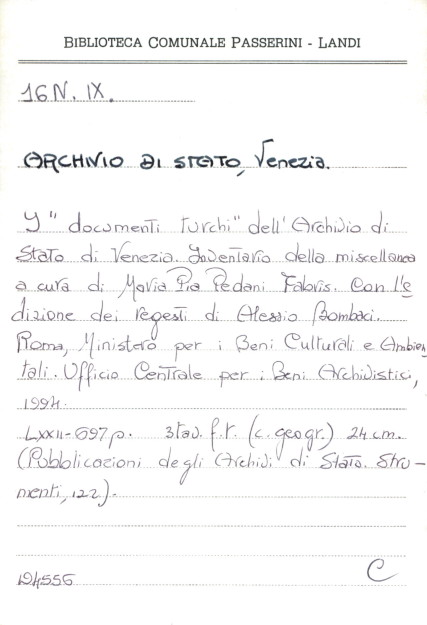 BIBLIOTECA COMUNALE PASSERINI - LANDI
16 N. IX.
ARCHIVIO DI STATO, Venezia.
I "documenti turchi" dell'Archivio di
Stato di Venezia. Inventario della miscellanea
a cura di Maria Pia Pedani Fabris. Con l'e
dizione dei regesti di Alessio Bombaci.
Roma, Ministero per i Beni Culturali e Ambien
tali. Ufficio Centrale per i Beni Archivistici,
1994.
LXXII-697 p. 3 tav. f.t. (c. geogr.) 24 cm.
(Pubblicazioni degli Archivi di Stato. Stru-
menti, 122).
194556
C